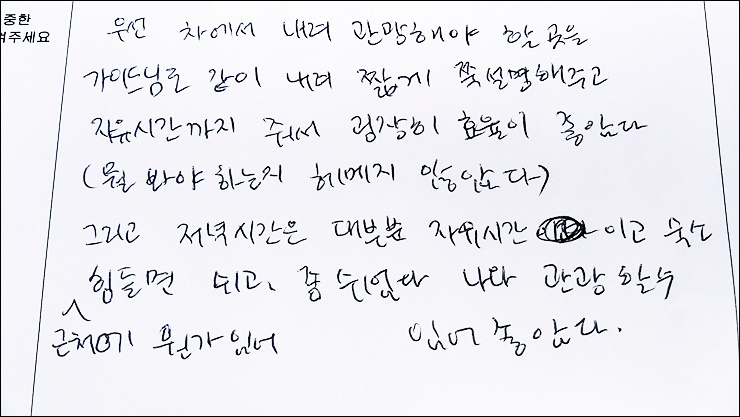 중한
겨주세요
우선 차에서 내려 관망해야 할 곳을
가이드님도 같이 내려 짧게 쭉 설명해주고
자유시간까지 줘서 굉장히 효율이 좋았다
(뭘 봐야 하는지 헤메지 않았다)
그리고 저녁시간은 대부분 자유시간 이고 숙소
힘들면 쉬고, 좀 쉬었다 나와 관광 할수
근처에 뭔가 있어 있어 좋았다.